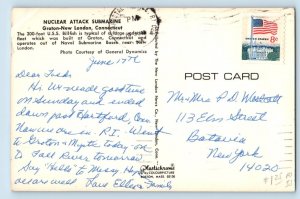 NUCLEAR ATTACK SUBMARINE
Groton-New London, Connecticut
The 300-foot U.S.S. Billfish is typical of
fleet which was built at Groton, Connecticut and
operates out of Naval Submarine Base, near New
London.
Photo Courtesy of General Dynamics
June 17th
Dear Freds:
Hi. We made good time
on Sunday and ended
down past Hartford, Conn.
Rain once in R.I. Went
to Groton & Mystic today, on
to Fall River tomorrow.
Say "Hello" to Missy. Hope
all are well. Love Ellen & Family
POST CARD
Mr & Mrs P.D.
113 Elm Street
Batavia
New York
14020
Plastichrome